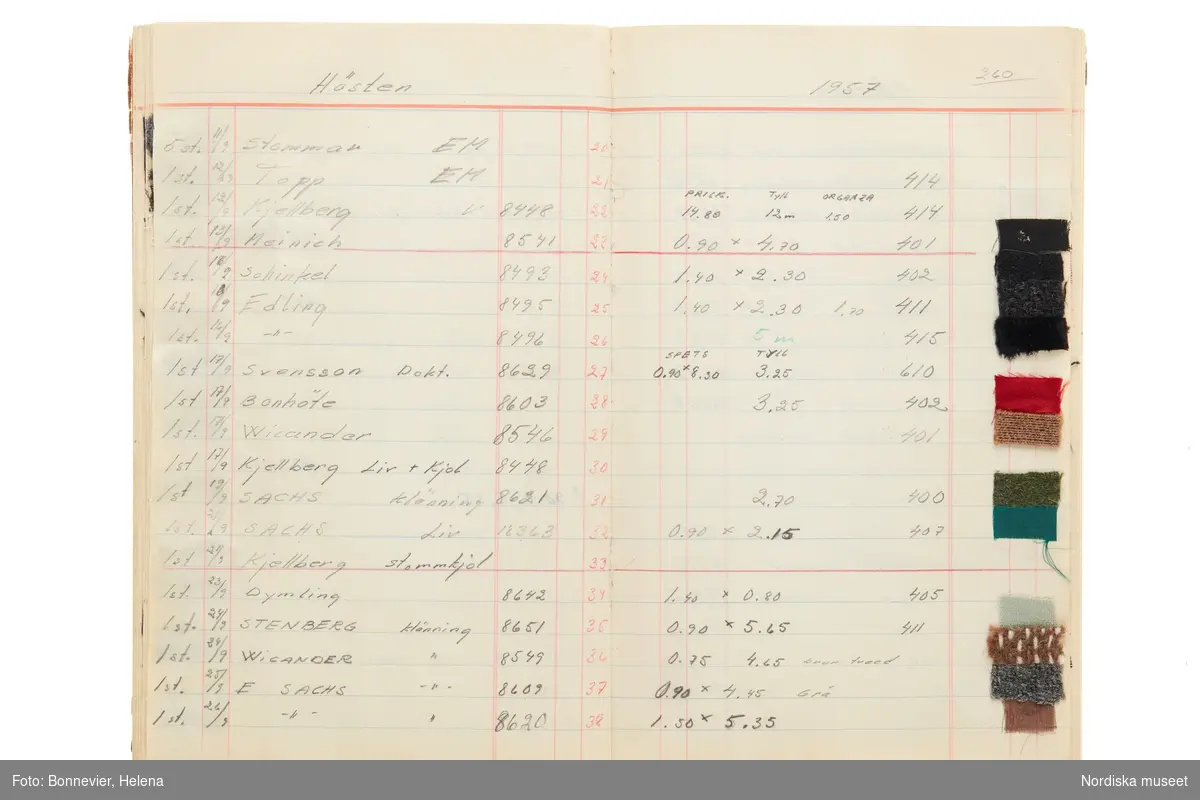 Hösten 1957 260
5 st. 11/9 Stommar EM 20
1 st. 12/9 Topp EM 21 414
PRICK. Tyll ORGANZA
1 st. 12/9 Kjellberg 8448 22 14.80 12m 1.50 414
1 st. 13/9 Heinich 8541 23 0.90 x 4.70 401
1 st. 18/9 Schinkel 8493 24 1.40 x 2.30 402
1 st. 18/9 Edling 8495 25 1.40 x 2.30 1.70 411
1 st. 16/9 -"- 8496 26 5 m 415
SPETS TYLL
1 st 17/9 Svensson Dokt. 8629 27 0.90 x 8.30 3.25 610
1 st 17/9 Bonhöte 8603 28 3.25 402
1 st. 17/9 Wicander 8546 29 401
1 st 17/9 Kjellberg Liv + Kjol 8448 30
1 st 19/9 SACHS klänning 8621 31 2.70 400
1 st. 21/9 SACHS Liv 18363 32 0.90 x 2.15 407
1 st 21/9 Kjellberg stommkjol 33
1 st. 23/9 Dymling 8642 34 1.40 x 0.80 405
1 st. 24/9 STENBERG klänning 8651 35 0.90 x 5.65 411
1 st. 24/9 WICANDER " 8549 36 0.75 4.65 tweed
1 st. 25/9 E SACHS -"- 8609 37 0.90 x 4.45 Grå
1 st. 26/9 -"- " 8620 38 1.50 x 5.35
Foto: Bonnevier, Helena Nordiska museet